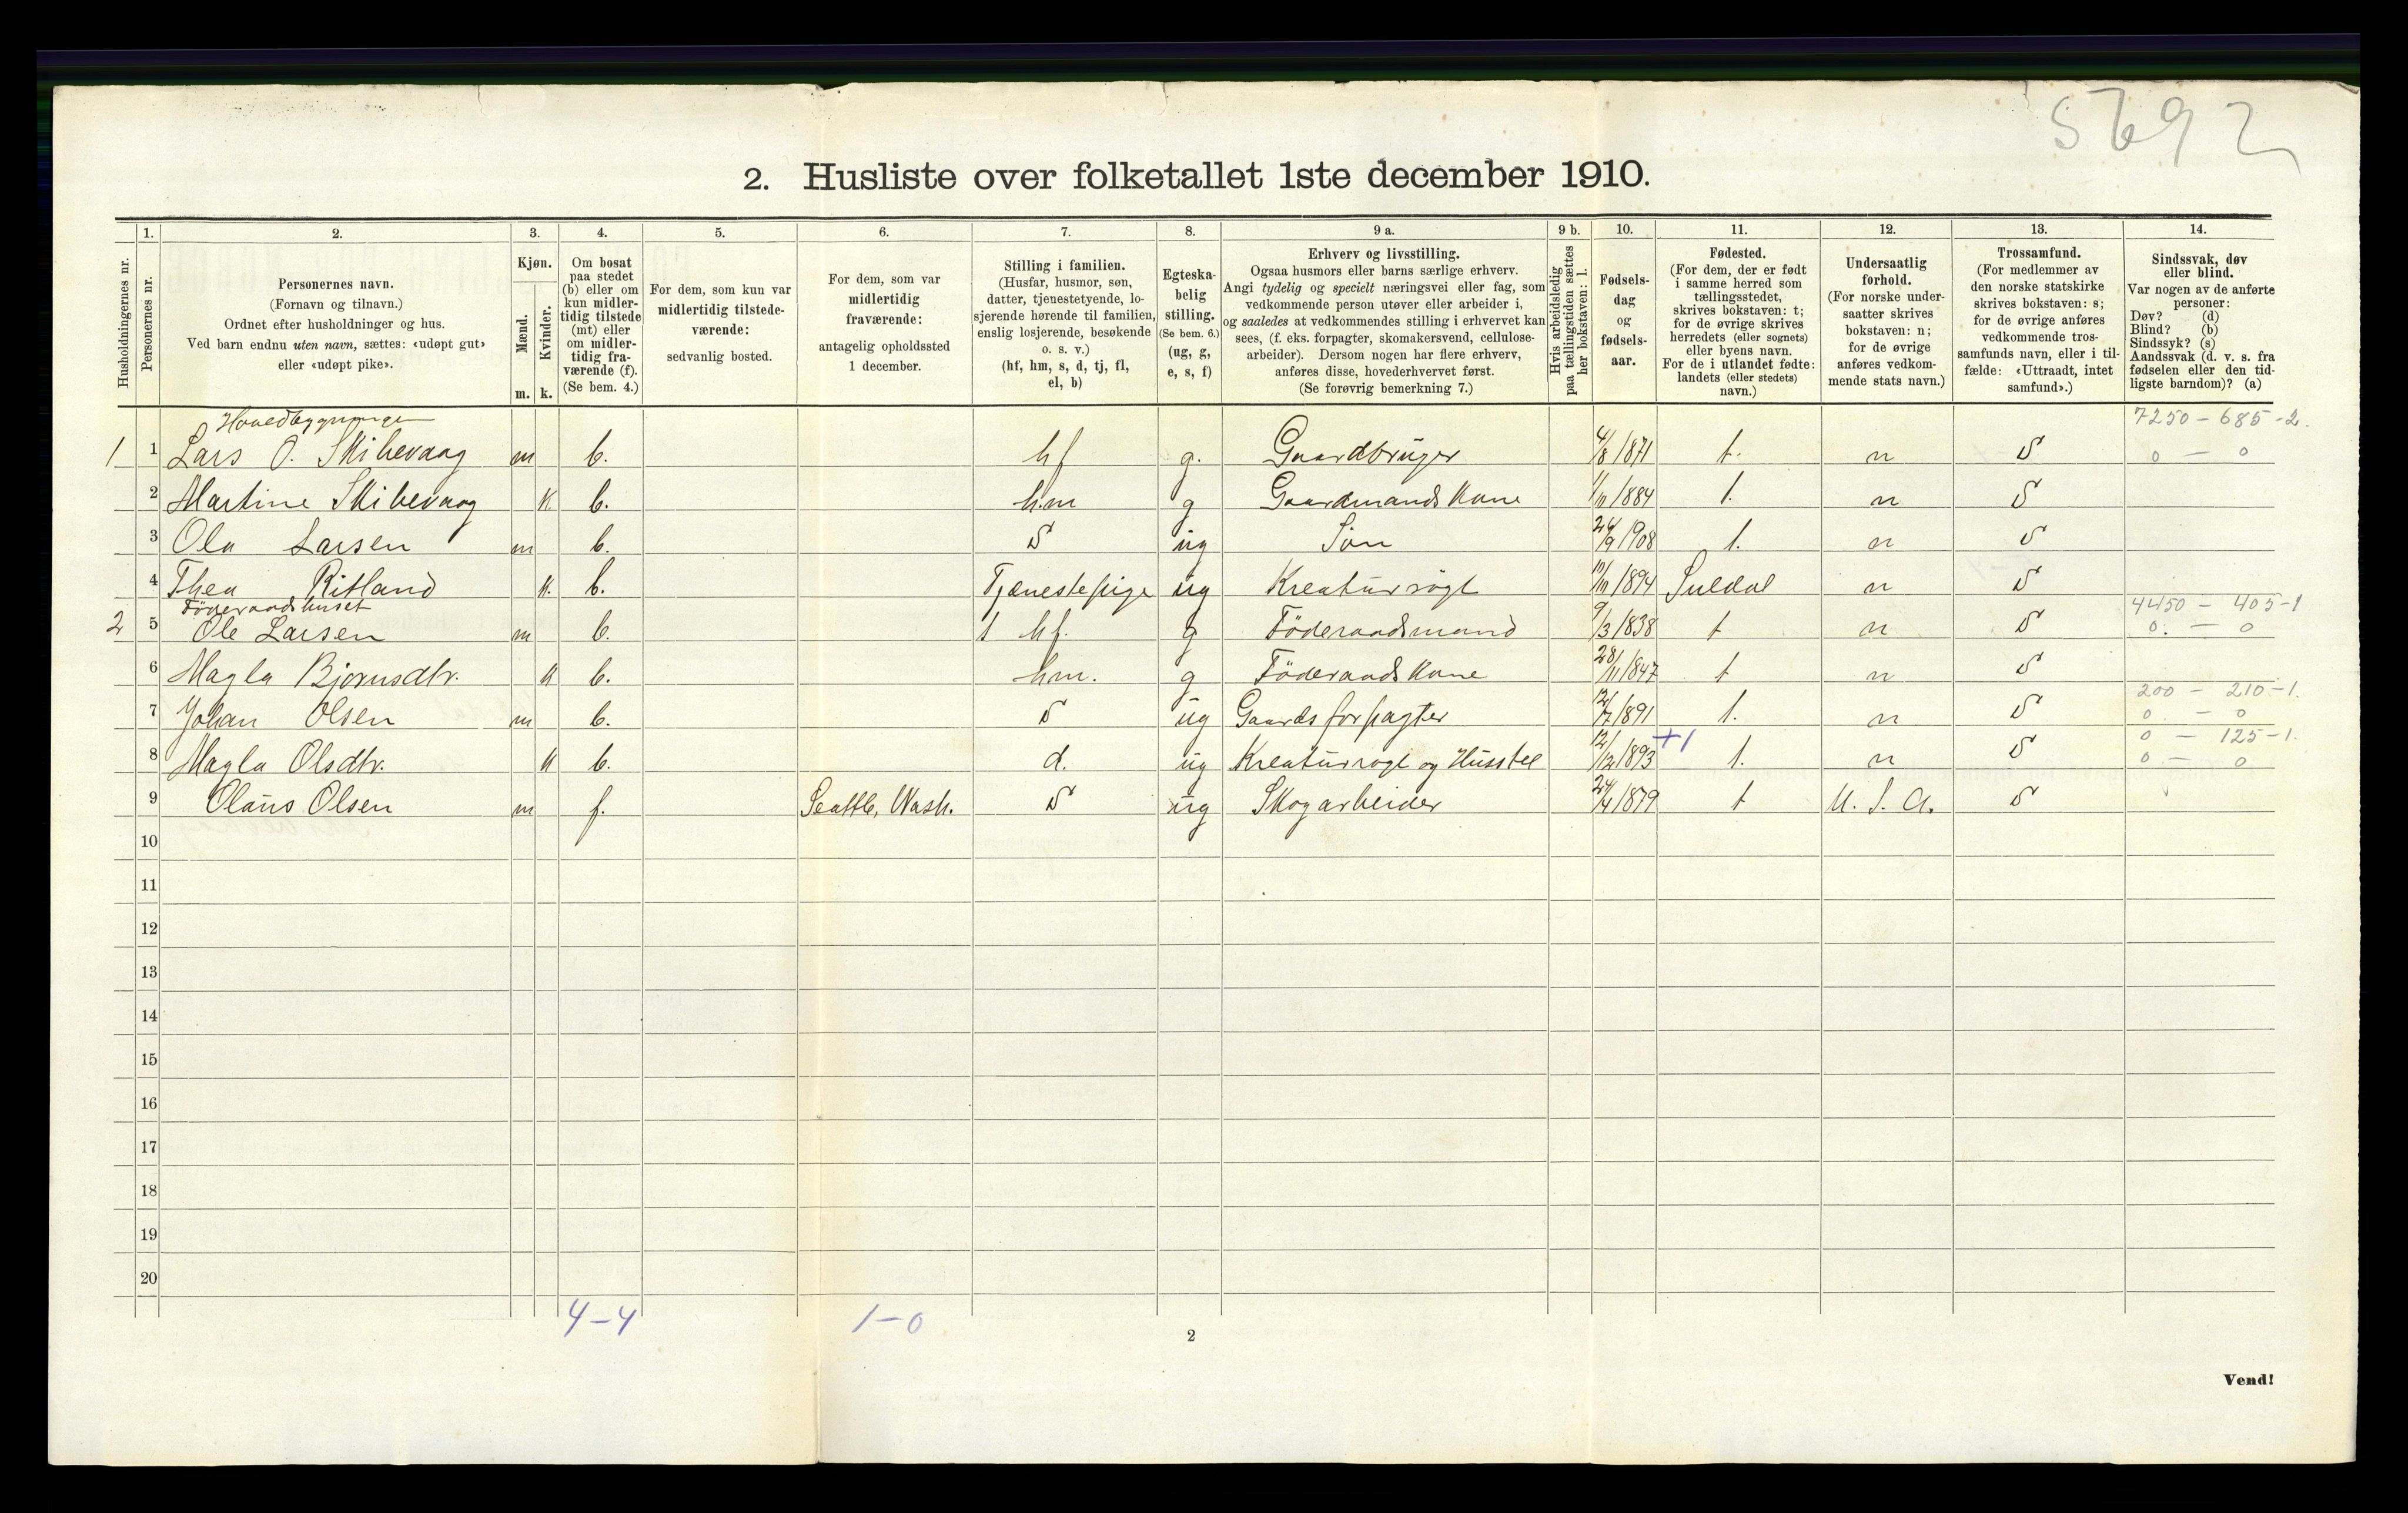 5692
2. Husliste over folketallet 1ste december 1910.
Husholdningernes nr.
1.
Personernes nr.
2.
Personernes navn.
(Fornavn og tilnavn.)
Ordnet efter husholdninger og hus.
Ved barn endnu uten navn, sættes: «udøpt gut»
eller «udøpt pike».
3.
Kjøn.
Mænd.
Kvinder.
m. k.
4.
Om bosat
paa stedet
(b) eller om
kun midler-
tidig tilstede
(mt) eller
om midler-
tidig fra-
værende (f).
(Se bem. 4.)
5.
For dem, som kun var
midlertidig tilstede-
værende:
sedvanlig bosted.
6.
For dem, som var
midlertidig
fraværende:
antagelig opholdssted
1 december.
7.
Stilling i familien.
(Husfar, husmor, søn,
datter, tjenestetyende, lo-
sjerende hørende til familien,
enslig losjerende, besøkende
o. s. v.)
(hf, hm, s, d, tj, fl,
el, b)
8.
Egteska-
belig
stilling.
(Se bem. 6.)
(ug, g,
e, s, f)
9 a.
Erhverv og livsstilling.
Ogsaa husmors eller barns særlige erhverv.
Angi tydelig og specielt næringsvei eller fag, som
vedkommende person utøver eller arbeider i,
og saaledes at vedkommendes stilling i erhvervet kan
sees, (f. eks. forpagter, skomakersvend, cellulose-
arbeider). Dersom nogen har flere erhverv,
anføres disse, hovederhvervet først.
(Se forøvrig bemerkning 7.)
9 b.
Hvis arbeidsledig
paa tællingstiden sættes
her bokstaven: l.
10.
Fødsels-
dag
og
fødsels-
aar.
11.
Fødested.
(For dem, der er født
i samme herred som
tællingsstedet,
skrives bokstaven: t;
for de øvrige skrives
herredets (eller sognets)
eller byens navn.
For de i utlandet fødte:
landets (eller stedets)
navn.)
12.
Undersaatlig
forhold.
(For norske under-
saatter skrives
bokstaven: n;
for de øvrige
anføres vedkom-
mende stats navn.)
13.
Trossamfund.
(For medlemmer av
den norske statskirke
skrives bokstaven: s;
for de øvrige anføres
vedkommende tros-
samfunds navn, eller i til-
fælde: «Uttraadt, intet
samfund».)
14.
Sindssvak, døv
eller blind.
Var nogen av de anførte
personer:
Døv? (d)
Blind? (b)
Sindssyk? (s)
Aandssvak (d. v. s. fra
fødselen eller den tid-
ligste barndom)? (a)
Hovedbygningen 7250 - 685 - 2.
1 1 Lars O. Skibevaag m b. hf g. Gaardbruger 4/8 1871 t. n S 0 - 0
2 Martine Skibevaag k b. hm g Gaardmands Kone 1/11 1884 t. n S
3 Ola Larsen m b. S ug Søn 24/9 1908 t. n S
4 Thea Ritland k. b. Tjenestepige ug Kreaturrøgt /11 1894 Suldal n S
Föderaadshuset 4450 - 405-1
2 5 Ole Larsen m b. hf. g Föderaadsmand 9/3 1838 t n S 0. - 0
6 Magla Bjørnsdtr. k b. hm. g Föderaads Kone 28/11 1847 t n S
200 - 210-1.
7 Johan Olsen m b. S ug Gaardsforpagter 12/7 1891 t. n S 0 - 0
+1 0 - 125-1.
8 Magla Olsdtr. k b. d. ug Kreaturrøgt og Husstel 12/12 1893 t. n S 0 - 0
9 Olaus Olsen m f. Seattle, Wash. S ug Skogarbeider 24/4 1879 t U. S. A. S
10
11
12
13
14
15
16
17
18
19
20
4-4 1-0
2
Vend!